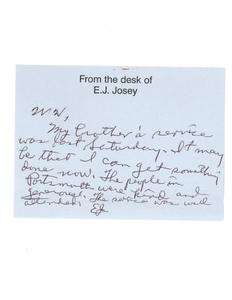 From the desk of
E.J. Josey
W W,
My brother's service
was last Saturday. It may
be that I can get something
done now. The people in
Portsmouth were kind and
generous. The service was well
attended.
EJ